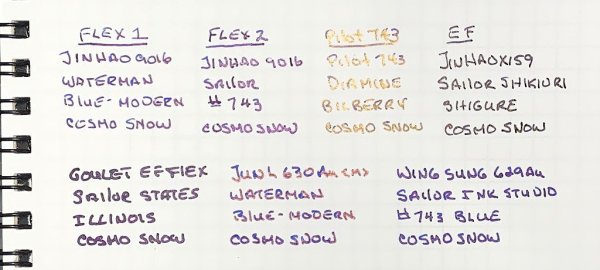 FLEX 1
JINHAO 9016
WATERMAN
BLUE-MODERN
COSMO SNOW
FLEX 2
JINHAO 9016
SAILOR
#743
COSMO SNOW
Pilot 743
Pilot 743
DIAMINE
BILBERRY
COSMO SNOW
EF
JINHAO X159
SAILOR SHIKIURI
SHIGURE
COSMO SNOW
GOULET EF FLEX
SAILOR STATES
ILLINOIS
COSMO SNOW
JUNL 630
WATERMAN
BLUE-MODERN
COSMO SNOW
WING SUNG 629
SAILOR INK STUDIO
#743 BLUE
COSMO SNOW